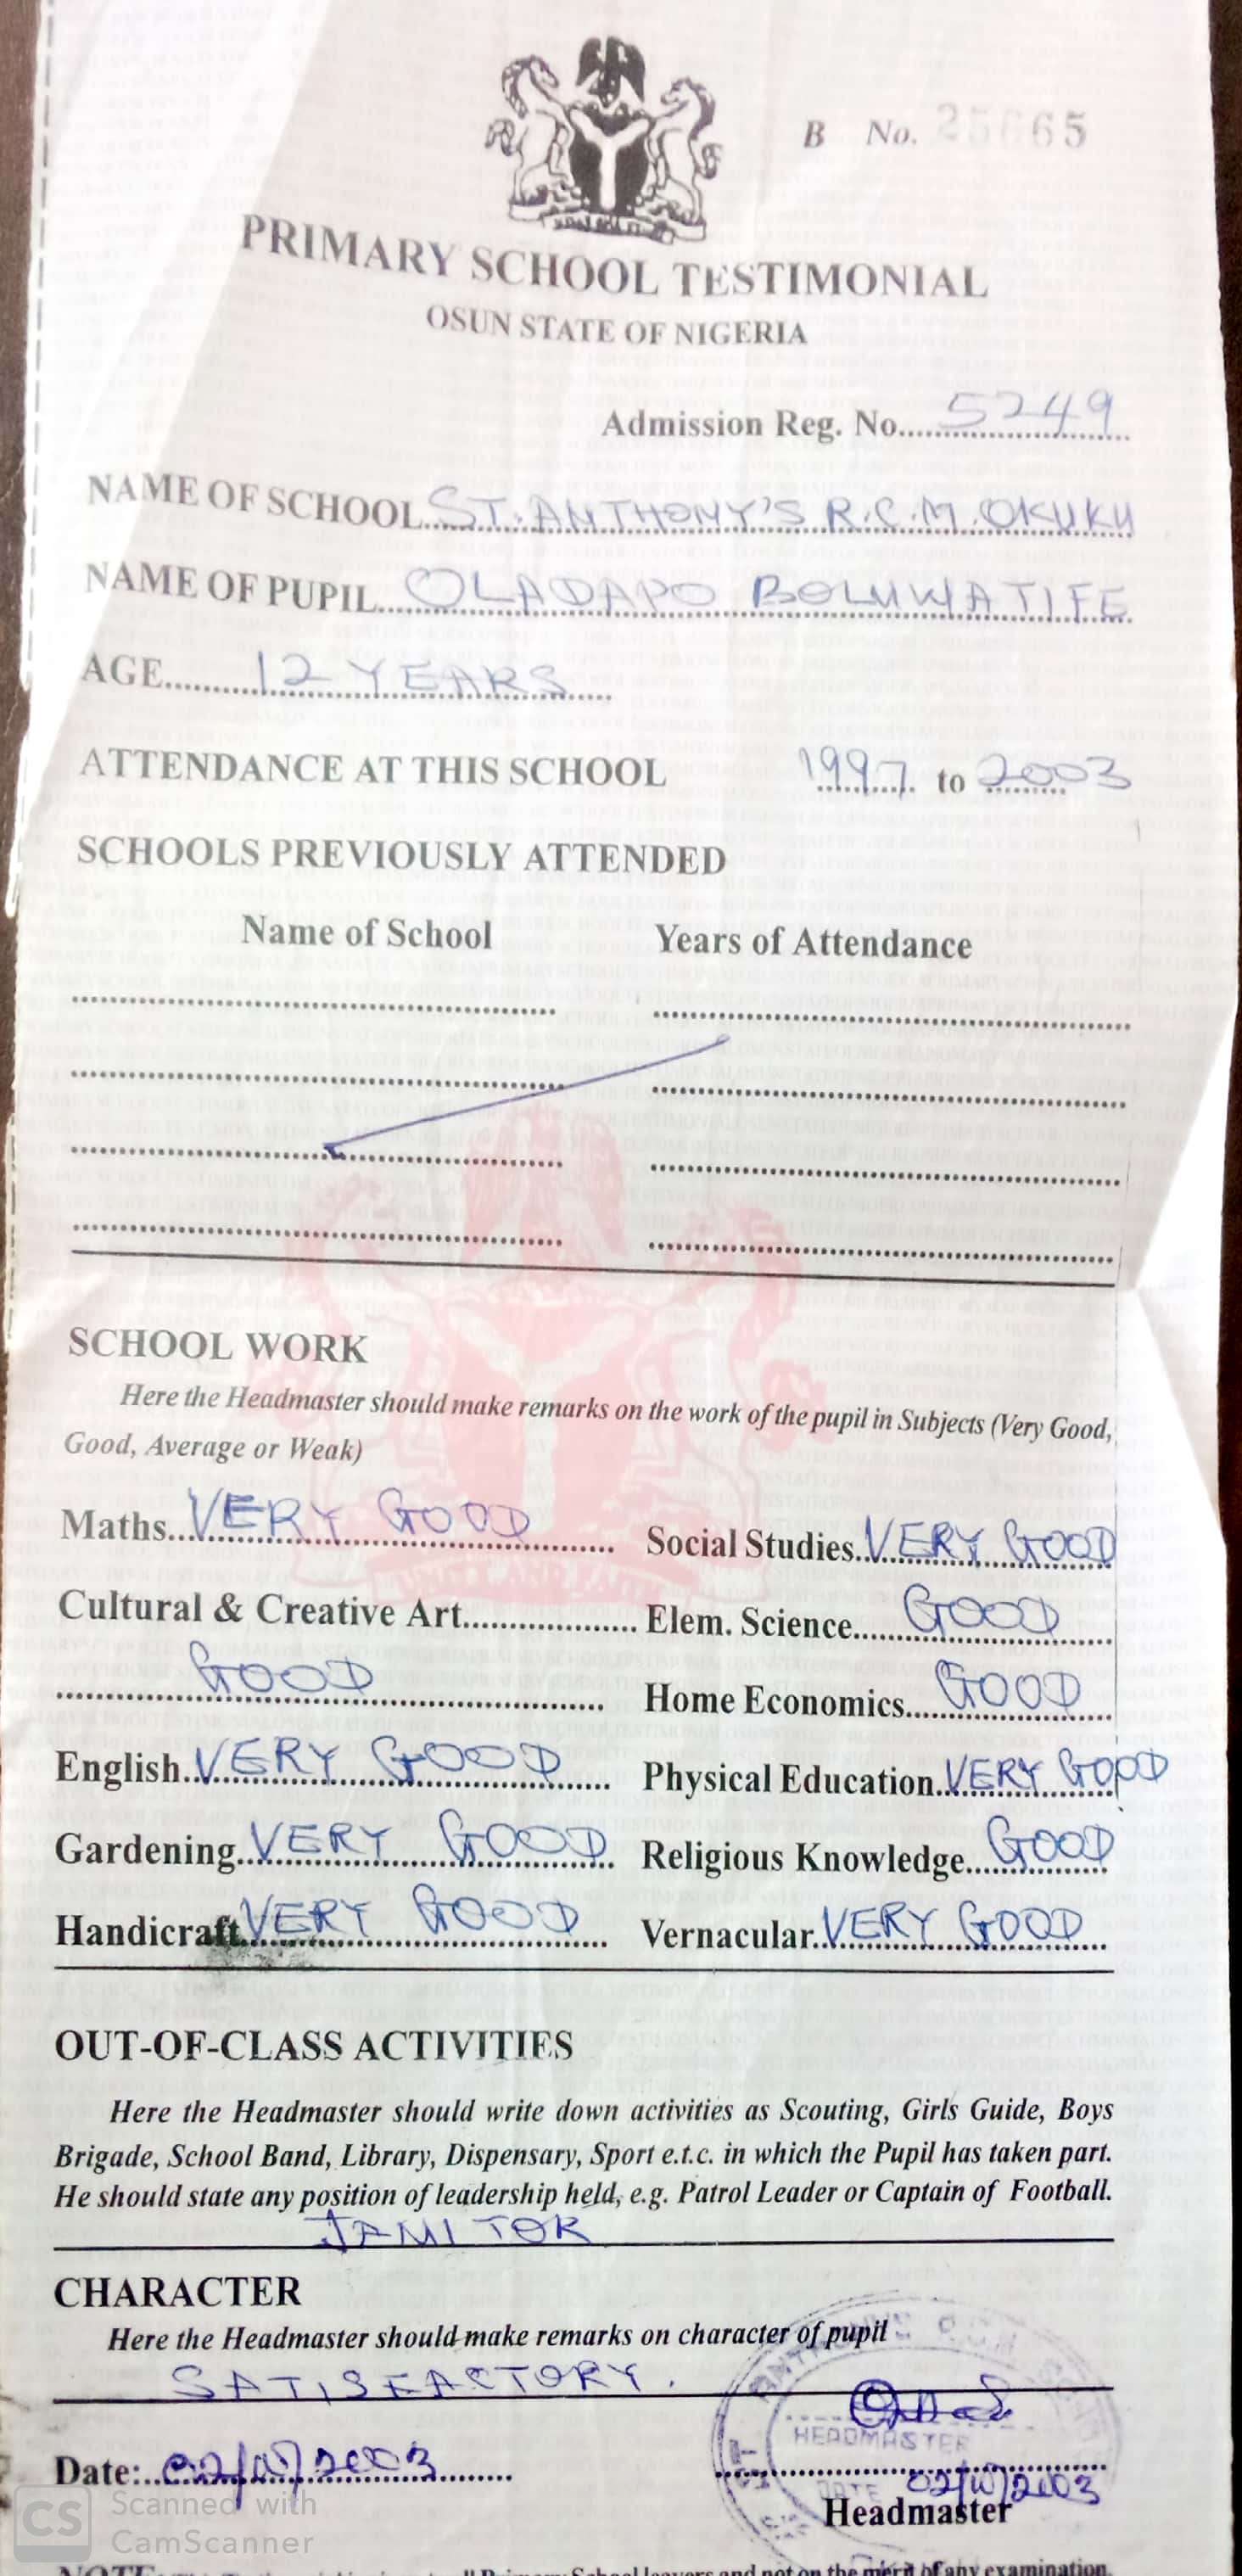 B No. 25665
PRIMARY SCHOOL TESTIMONIAL
OSUN STATE OF NIGERIA
Admission Reg. No. 5249
NAME OF SCHOOL ST. ANTHONY'S R.C.M. OKUKU
NAME OF PUPIL OLADAPO BOLUWATIFE
AGE 12 YEARS
ATTENDANCE AT THIS SCHOOL 1997 to 2003
SCHOOLS PREVIOUSLY ATTENDED
Name of School Years of Attendance
SCHOOL WORK
Here the Headmaster should make remarks on the work of the pupil in Subjects (Very Good,
Good, Average or Weak)
Maths VERY GOOD Social Studies VERY GOOD
Cultural & Creative Art Elem. Science GOOD
GOOD Home Economics GOOD
English VERY GOOD Physical Education VERY GOOD
Gardening VERY GOOD Religious Knowledge GOOD
Handicraft VERY GOOD Vernacular VERY GOOD
OUT-OF-CLASS ACTIVITIES
Here the Headmaster should write down activities as Scouting, Girls Guide, Boys
Brigade, School Band, Library, Dispensary, Sport e.t.c. in which the Pupil has taken part.
He should state any position of leadership held, e.g. Patrol Leader or Captain of Football.
JANITOR
CHARACTER
Here the Headmaster should make remarks on character of pupil
SATISFACTORY.
HEADMASTER
Date: 02/10/2003
DATE 02/10/2003
Headmaster
CS Scanned with
CamScanner
School leavers and not on the merit of any examination.